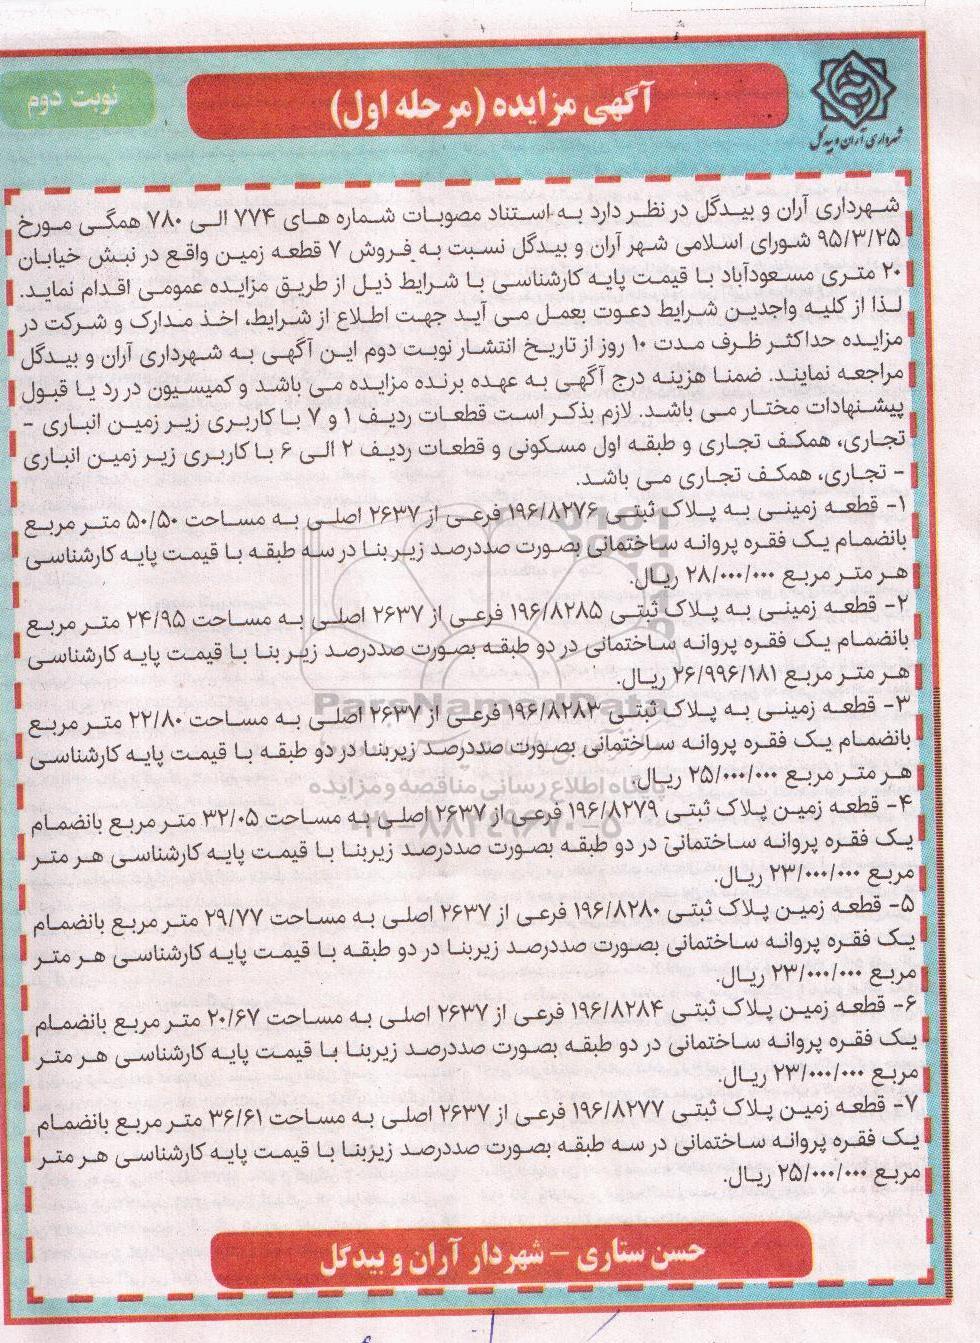 شهرداری آران و بیدگل
آگهی مزایده (مرحله اول)
نوبت دوم
شهرداری آران و بیدگل در نظر دارد به استناد مصوبات شماره های ۷۷۴ الی ۷۸۰ همگی مورخ
۹۵/۳/۲۵ شورای اسلامی شهر آران و بیدگل نسبت به فروش ۷ قطعه زمین واقع در نبش خیابان
۲۰ متری مسعودآباد با قیمت پایه کارشناسی با شرایط ذیل از طریق مزایده عمومی اقدام نماید.
لذا از کلیه واجدین شرایط دعوت بعمل می آید جهت اطلاع از شرایط، اخذ مدارک و شرکت در
مزایده حداکثر ظرف مدت ۱۰ روز از تاریخ انتشار نوبت دوم این آگهی به شهرداری آران و بیدگل
مراجعه نمایند. ضمنا هزینه درج آگهی به عهده برنده مزایده می باشد و کمیسیون در رد یا قبول
پیشنهادات مختار می باشد. لازم بذکر است قطعات ردیف ۱ و ۷ با کاربری زیر زمین انباری -
تجاری، همکف تجاری و طبقه اول مسکونی و قطعات ردیف ۲ الی ۶ با کاربری زیر زمین انباری
- تجاری، همکف تجاری می باشد.
۱- قطعه زمینی به پلاک ثبتی ۱۹۶/۸۲۷۶ فرعی از ۲۶۳۷ اصلی به مساحت ۵۰/۵۰ متر مربع
بانضمام یک فقره پروانه ساختمانی بصورت صددرصد زیر بنا در سه طبقه با قیمت پایه کارشناسی
هر متر مربع ۲۸/۰۰۰/۰۰۰ ریال.
۲- قطعه زمینی به پلاک ثبتی ۱۹۶/۸۲۸۵ فرعی از ۲۶۳۷ اصلی به مساحت ۲۴/۹۵ متر مربع
بانضمام یک فقره پروانه ساختمانی در دو طبقه بصورت صددرصد زیر بنا با قیمت پایه کارشناسی
هر متر مربع ۲۶/۹۹۶/۱۸۱ ریال.
۳- قطعه زمینی به پلاک ثبتی ۱۹۶/۸۲۸۳ فرعی از ۲۶۳۷ اصلی به مساحت ۲۲/۸۰ متر مربع
بانضمام یک فقره پروانه ساختمانی بصورت صددرصد زیربنا در دو طبقه با قیمت پایه کارشناسی
هر متر مربع ۲۵/۰۰۰/۰۰۰ ریال.
۴- قطعه زمین پلاک ثبتی ۱۹۶/۸۲۷۹ فرعی از ۲۶۳۷ اصلی به مساحت ۳۲/۰۵ متر مربع بانضمام
یک فقره پروانه ساختمانی در دو طبقه بصورت صددرصد زیربنا با قیمت پایه کارشناسی هر متر
مربع ۲۳/۰۰۰/۰۰۰ ریال.
۵- قطعه زمین پلاک ثبتی ۱۹۶/۸۲۸۰ فرعی از ۲۶۳۷ اصلی به مساحت ۲۹/۷۷ متر مربع بانضمام
یک فقره پروانه ساختمانی بصورت صددرصد زیربنا در دو طبقه با قیمت پایه کارشناسی هر متر
مربع ۲۳/۰۰۰/۰۰۰ ریال.
۶- قطعه زمین پلاک ثبتی ۱۹۶/۸۲۸۴ فرعی از ۲۶۳۷ اصلی به مساحت ۲۰/۶۷ متر مربع بانضمام
یک فقره پروانه ساختمانی در دو طبقه بصورت صددرصد زیربنا با قیمت پایه کارشناسی هر متر
مربع ۲۳/۰۰۰/۰۰۰ ریال.
۷- قطعه زمین پلاک ثبتی ۱۹۶/۸۲۷۷ فرعی از ۲۶۳۷ اصلی به مساحت ۳۶/۶۱ متر مربع بانضمام
یک فقره پروانه ساختمانی در سه طبقه بصورت صددرصد زیربنا با قیمت پایه کارشناسی هر متر
مربع ۲۵/۰۰۰/۰۰۰ ریال.
حسن ستاری - شهردار آران و بیدگل
ParsNamadData
پایگاه اطلاع رسانی مناقصه و مزایده
۰۲۱-۸۸۳۴۹۶۷۰-۵